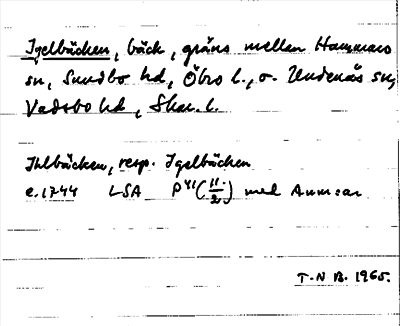 Igelbäcken, bäck, gräns mellan Hammars
sn, Sundbo hd, Öbro l., o. Undenäs sn,
Vadsbo hd, Skar. l.
Ihlbäcken, resp. Igelbäcken
c. 1744 LSA P41(11/2) med Anm:ar
T-N B. 1965.